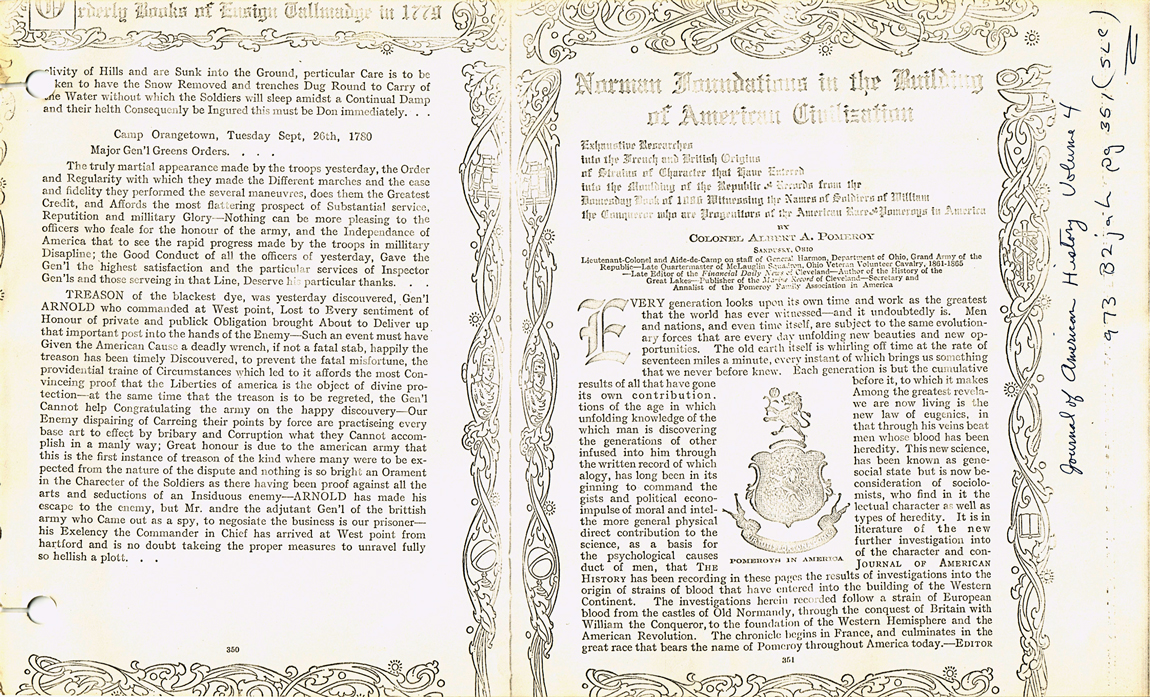 Orderly Books of Ensign Tallmadge in 1779
clivity of Hills and are Sunk into the Ground, perticular Care is to be
ken to have the Snow Removed and trenches Dug Round to Carry of
the Water without which the Soldiers will sleep amidst a Continual Damp
and their helth Consequenly be Ingured this must be Don immediately. . .
Camp Orangetown, Tuesday Sept, 26th, 1780
Major Gen'l Greens Orders. . . .
The truly martial appearance made by the troops yesterday, the Order
and Regularity with which they made the Different marches and the ease
and fidelity they performed the several maneuvres, does them the Greatest
Credit, and Affords the most flattering prospect of Substantial service,
Reputition and millitary Glory—Nothing can be more pleasing to the
officers who feale for the honour of the army, and the Independance of
America that to see the rapid progress made by the troops in millitary
Disapline; the Good Conduct of all the officers of yesterday, Gave the
Gen'l the highest satisfaction and the particular services of Inspector
Gen'ls and those serveing in that Line, Deserve his particular thanks. . .
TREASON of the blackest dye, was yesterday discovered, Gen'l
ARNOLD who commanded at West point, Lost to Every sentiment of
Honour of private and publick Obligation brought About to Deliver up
that important post into the hands of the Enemy—Such an event must have
Given the American Cause a deadly wrench, if not a fatal stab, happily the
treason has been timely Discovered, to prevent the fatal misfortune, the
providential traine of Circumstances which led to it affords the most Con-
vinceing proof that the Liberties of america is the object of divine pro-
tection—at the same time that the treason is to be regreted, the Gen'l
Cannot help Congratulating the army on the happy discouvery—Our
Enemy dispairing of Carreing their points by force are practiseing every
base art to effect by bribary and Corruption what they Cannot accom-
plish in a manly way; Great honour is due to the american army that
this is the first instance of treason of the kind where many were to be ex-
pected from the nature of the dispute and nothing is so bright an Orament
in the Charecter of the Soldiers as there having been proof against all the
arts and seductions of an Insiduous enemy—ARNOLD has made his
escape to the enemy, but Mr. andre the adjutant Gen'l of the brittish
army who Came out as a spy, to negosiate the business is our prisoner—
his Exelency the Commander in Chief has arrived at West point from
hartford and is no doubt takeing the proper measures to unravel fully
so hellish a plott. . .
350
Norman Foundations in the Building
of American Civilization
Exhaustive Researches
into the French and British Origins
of Strains of Character that Have Entered
into the Moulding of the Republic Records from the
Domesday Book of 1086 Witnessing the Names of Soldiers of William
the Conqueror who are Progenitors of the American Race Pomeroys in America
BY
COLONEL ALBERT A. POMEROY
SANDUSKY, OHIO
Lieutenant-Colonel and Aide-de-Camp on staff of General Harmon, Department of Ohio, Grand Army of the
Republic—Late Quartermaster of McLauglin Squadron, Ohio Veteran Volunteer Cavalry, 1861-1865
—Late Editor of the Financial Daily News of Cleveland—Author of the History of the
Great Lakes—Publisher of the Marine Record of Cleveland—Secretary and
Annalist of the Pomeroy Family Association in America
EVERY generation looks upon its own time and work as the greatest
that the world has ever witnessed—and it undoubtedly is. Men
and nations, and even time itself, are subject to the same evolution-
ary forces that are every day unfolding new beauties and new op-
portunities. The old earth itself is whirling off time at the rate of
seventeen miles a minute, every instant of which brings us something
that we never before knew. Each generation is but the cumulative
results of all that have gone before it, to which it makes
its own contribution. Among the greatest revela-
tions of the age in which we are now living is the
unfolding knowledge of the new law of eugenics, in
which man is discovering that through his veins beat
the generations of other men whose blood has been
infused into him through heredity. This new science,
the written record of which has been known as gene-
alogy, has long been in its social state but is now be-
ginning to command the consideration of sociolo-
gists and political econo- mists, who find in it the
impulse of moral and intel- lectual character as well as
the more general physical types of heredity. It is in
direct contribution to the literature of the new
science, as a basis for further investigation into
the psychological causes of the character and con-
duct of men, that THE JOURNAL OF AMERICAN
POMEROYS IN AMERICA
HISTORY has been recording in these pages the results of investigations into the
origin of strains of blood that have entered into the building of the Western
Continent. The investigations herein recorded follow a strain of European
blood from the castles of Old Normandy, through the conquest of Britain with
William the Conqueror, to the foundation of the Western Hemisphere and the
American Revolution. The chronicle begins in France, and culminates in the
great race that bears the name of Pomeroy throughout America today.—EDITOR
351
Journal of American History Volume 4
973 B2jah pg 351 (SLC)